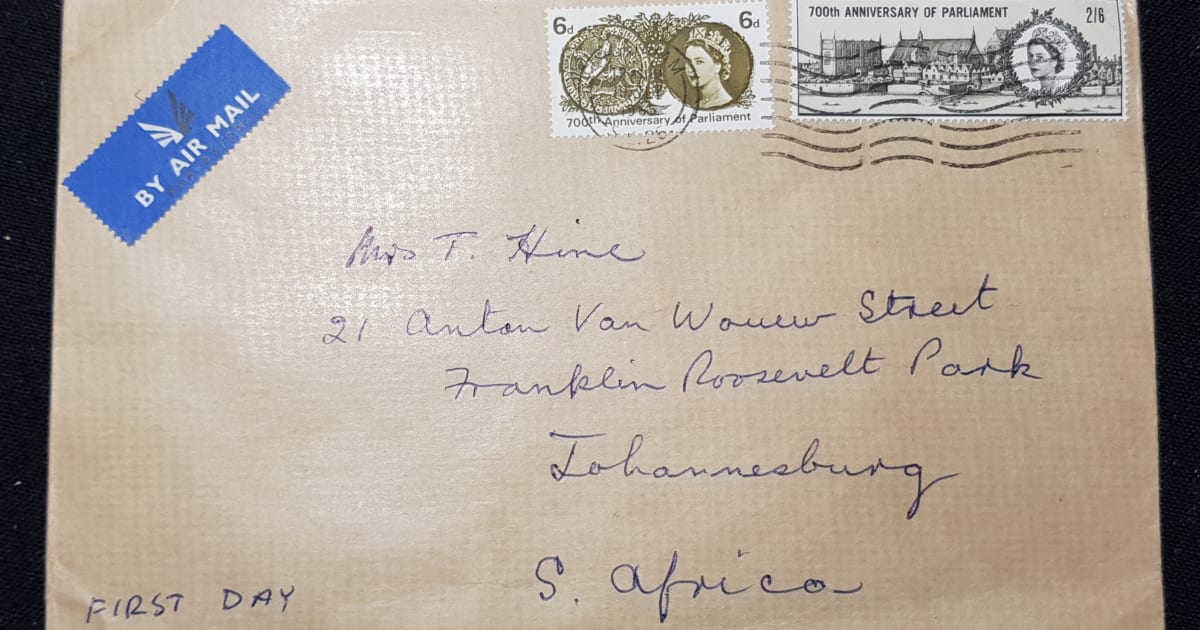 BY AIR MAIL
6d 6d
700th Anniversary of Parliament
700th ANNIVERSARY OF PARLIAMENT 2/6
Mrs T. Hine
21 Anton Van Wouw Street
Franklin Roosevelt Park
Johannesburg
S. Africa
FIRST DAY